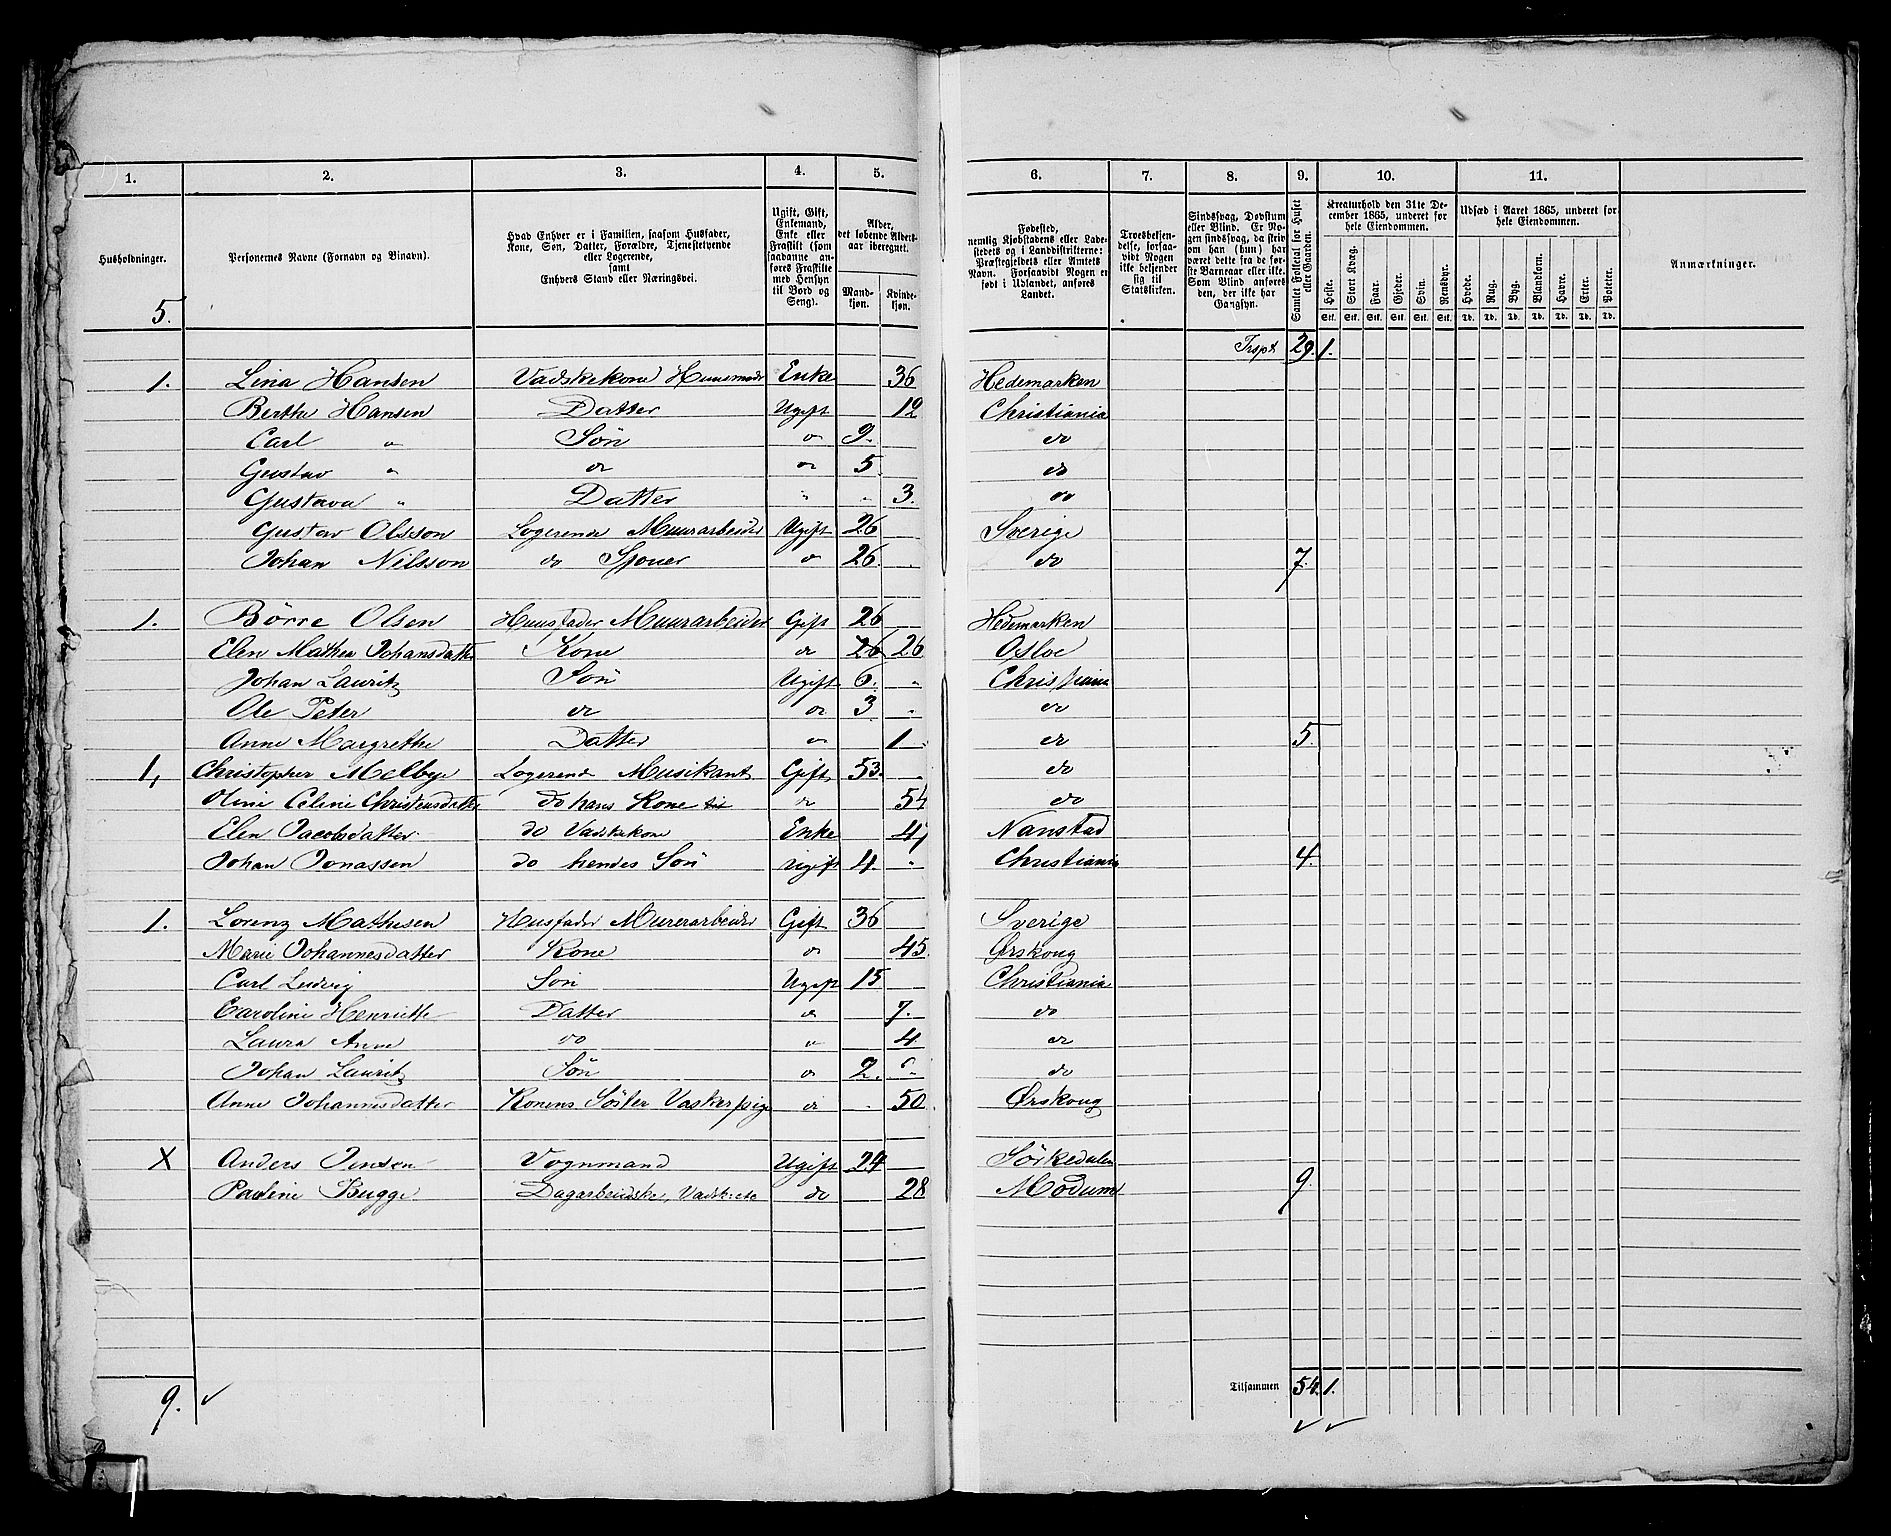 1. 2. 3. 4. 5. 6. 7. 8. 9. 10. 11.
Husholdninger.
Personernes Navne (Fornavn og Binavn).
Hvad Enhver er i Familien, saasom Husfader,
Kone, Søn, Datter, Forældre, Tjenestetyende
eller Logerende,
samt
Enhvers Stand eller Næringsvei.
Ugift, Gift,
Enkemand,
Enke eller
Fraskilt (som
saadanne an-
føres Fraskilte
med Hensyn
til Bord og
Seng).
Alder,
det løbende Alders-
aar iberegnet.
Mand-
kjøn.
Kvinde-
kjøn.
Fødested,
nemlig Kjøbstadens eller Lade-
stedets og i Landdistrikterne:
Præstegjeldets eller Amtets
Navn. Forsaavidt Nogen er
født i Udlandet, anføres
Landet.
Troesbekjen-
delse, forsaa-
vidt Nogen
ikke bekjender
sig til
Statskirken.
Sindssvag, Døvstum
eller Blind. Er No-
gen sindssvag, da skriv
om han (hun) har
været dette fra de før-
ste Barneaar eller ikke.
Som Blind anføres
den, der ikke har
Gangsyn.
Samlet Folketal for Huset
eller Gaarden.
Kreaturhold den 31te De-
cember 1865, underet for
hele Eiendommen.
Heste. Stort Kvæg. Faar. Gjeder. Svin. Rensdyr.
Stk. Stk. Stk. Stk. Stk. Stk.
Udsæd i Aaret 1865, underet for
hele Eiendommen.
Hvede. Rug. Byg. Blandkorn. Havre. Erter. Poteter.
Td. Td. Td. Td. Td. Td. Td.
Anmærkninger.
5.
Trspt 29. 1.
1. Lina Hansen Vadskekone Huusmoder Enke 36 Hedemarken
Berthe Hansen Datter Ugift 12 Christiania
Carl " Søn do 9. do
Gustav " do do 5. do
Gustava " Datter " " 3. do
Gustav Olsson Logerende Muurarbeider Ugift 26 Sverige
Johan Nilsson do do 26. do 7.
1. Börre Olsen Huusfader Muurarbeider Gift 26 Hedemarken
Elen Mathea Johansdatter Kone do 26 26 Osloe
Johan Lauritz Søn Ugift 6. " Christiania
Ole Peter do do 3 " do
Anne Margrethe Datter do 1 do 5.
1, Christopher Melbye Logerende Musikant Gift 53. " do
Oline Celine Christensdatter do hans Kone do 54 do
Elen Jacobsdatter do Vadskekone Enke 47 Nanstad
Johan Jonassen do hendes Søn Ugift 4. " Christiania 4.
1. Lorenz Mathisen Husfader Murerarbeider Gift 36 Sverige
Marie Johannesdatter Kone do 45. Ørskoug
Carl Ludvig Søn Ugift 15 Christiania
Caroline Henriette Datter do 7. do
Laura Anne do do 4 do
Johan Lauritz Søn do 2. do
Anne Johannesdatter Konens Søster Vaskerpige do 50. Ørskoug
X Anders Jensen Vognmand Ugift 24 Sörkedalen
Pauline Bugge Dagarbeidske, do 28 Modum 9.
Tilsammen 54. 1.
9.